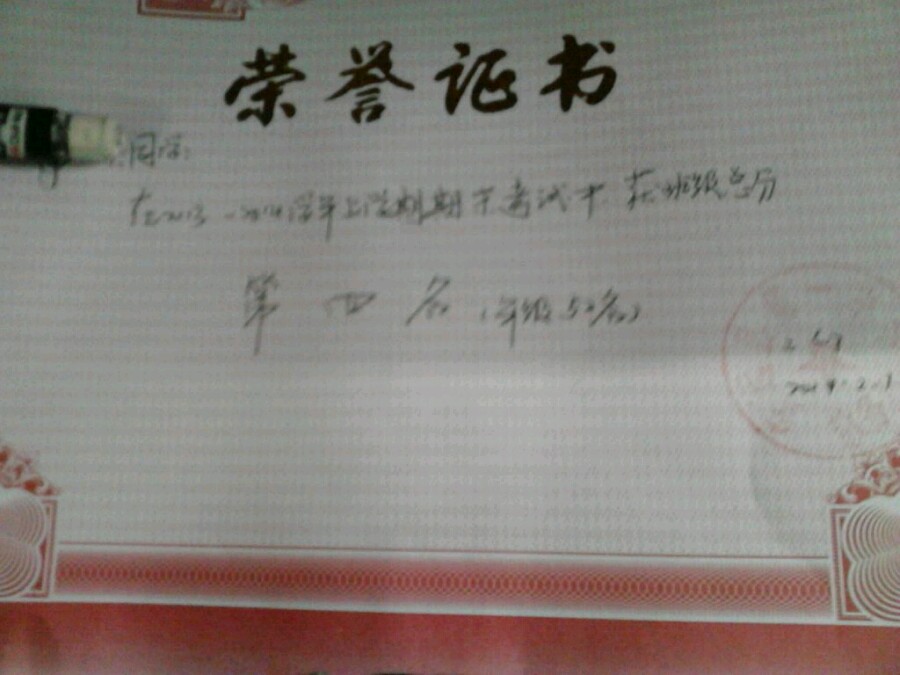 荣誉证书
同学:
在2013-2014学年上学期期末考试中 获班级总分
第四名(年级52名)
2014.2.1